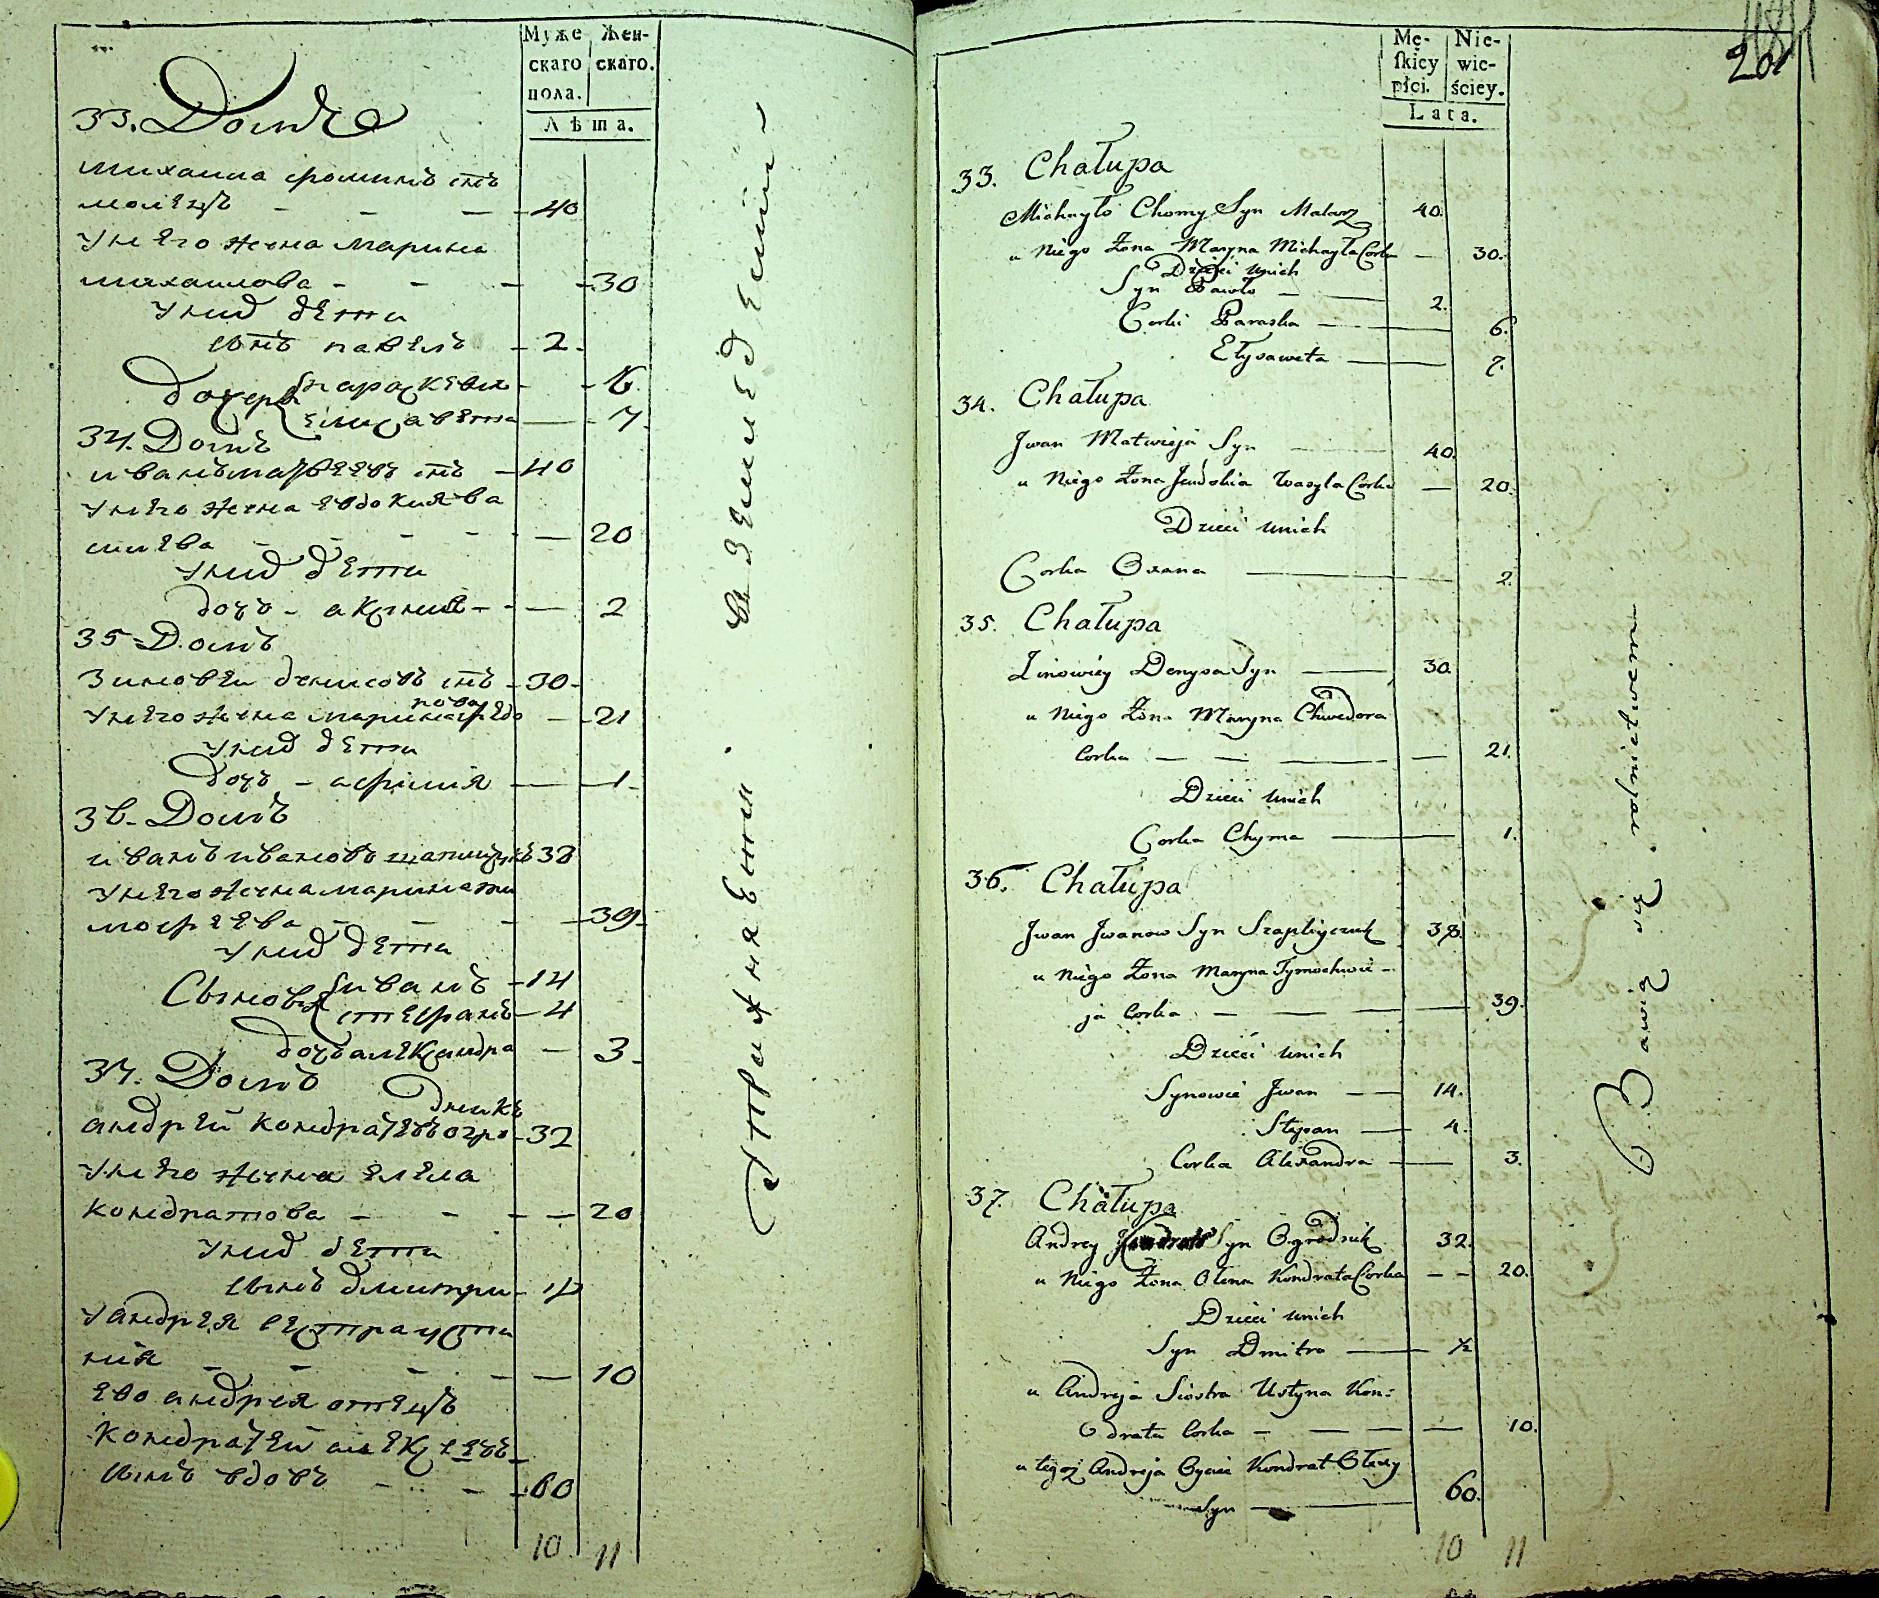 Муже
скаго
пола.
Жен-
скаго.
Лѣта.
33. Домъ
михаила фоминъ снъ
молецъ - - - 40
у него жена марина
михаилова - - - 30
у них дети
снъ павелъ - 2
дочери параскевия - 6
елисавета - 7
34. Домъ
иванъ матвеевъ снъ - 40
у него жена евдокия ва
силева - - - 20
у них дети
дочь - аксиния - - 2
35 Домъ
Зиновеи денисовъ снъ - 30
у него жена марина федо
рова - 21
у них дети
дочь - афимия - 1
36. Домъ
иванъ ивановъ 38
у него жена марина ти
мофеева - - - 39
у них дети
Сыновя иванъ - 14
стефанъ - 4
дочь александра - 3
37. Домъ
андрей кондратевъ огро
дникъ - 32
у него жена елена
кондратова - - - 20
у них дети
сынъ дмитри - 1/2
у андрея сестра усти
ния - - - 10
ево андрея отецъ
кондратей алексеевъ
снъ вдовъ - - 60
10 11
упражнения в земледелии
Mę-
ſkiey
płci.
Nie-
wie-
ściey.
Lata.
201
33. Chałupa
Michayło Chomy Syn Malarz 40.
u Niego Żona Maryna Michayła Corka - 30.
Dzieci unich
Syn Pawło - 2.
Corki Paraska - 6.
Ełysaweta - 7.
34. Chałupa
Jwan Matwieja Syn 40.
u Niego Żona Jewdokia Wasyla Corka - 20.
Dzieci unich
Corka Oxana - 2.
35. Chałupa
Zinowiey Denysa Syn - 30.
u Niego Żona Maryna Chwedora
Corka - - - 21.
Dzieci unich
Corka Chyma - 1.
36. Chałupa
Jwan Jwanow Syn Szapliyczuk 38.
u Niego Żona Maryna Tymochwie-
ja Corka - - - 39.
Dzieci unich
Synowie Jwan - 14.
Stepan - 4.
Corka Alexandra - 3.
37. Chałupa
Andrey Kondrata Syn Ogrodnik 32.
u Niego Żona Ołena Kondrata Corka - - 20.
Dzieci unich
Syn Dmitro - 1/2
u Andreja Siostra Ustyna Kon:
drata Corka - - - 10.
u tegoż Andreja Oyciec Kondrat Ołexy
Syn - 60.
10 11
Bawią się rolnictwem